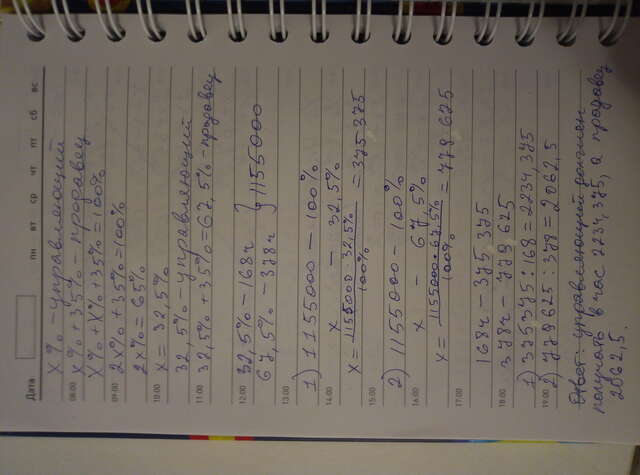 Дата
пн вт ср чт пт сб вс
x% - управляющий
08:00
x% + 35% - продавец
x% + x% + 35% = 100%
09:00
2x% + 35% = 100%
2x% = 65%
10:00
x = 32,5%
32,5% - управляющий
11:00
32,5% + 35% = 67,5% - продавец
12:00
32,5% - 168ч } 1155000
67,5% - 378ч
13:00
1) 1155000 - 100%
14:00
x - 32,5%
x = 1155000 32,5% / 100% = 375375
15:00
2) 1155000 - 100%
16:00
x - 67,5%
x = 1155000 • 67,5% / 100% = 779625
17:00
168ч - 375375
18:00
378ч - 779625
1) 375375 : 168 = 2234,375
19:00
2) 779625 : 378 = 2062,5
Ответ: управляющий должен
получать в час 2234,375, а продавец
2062,5.